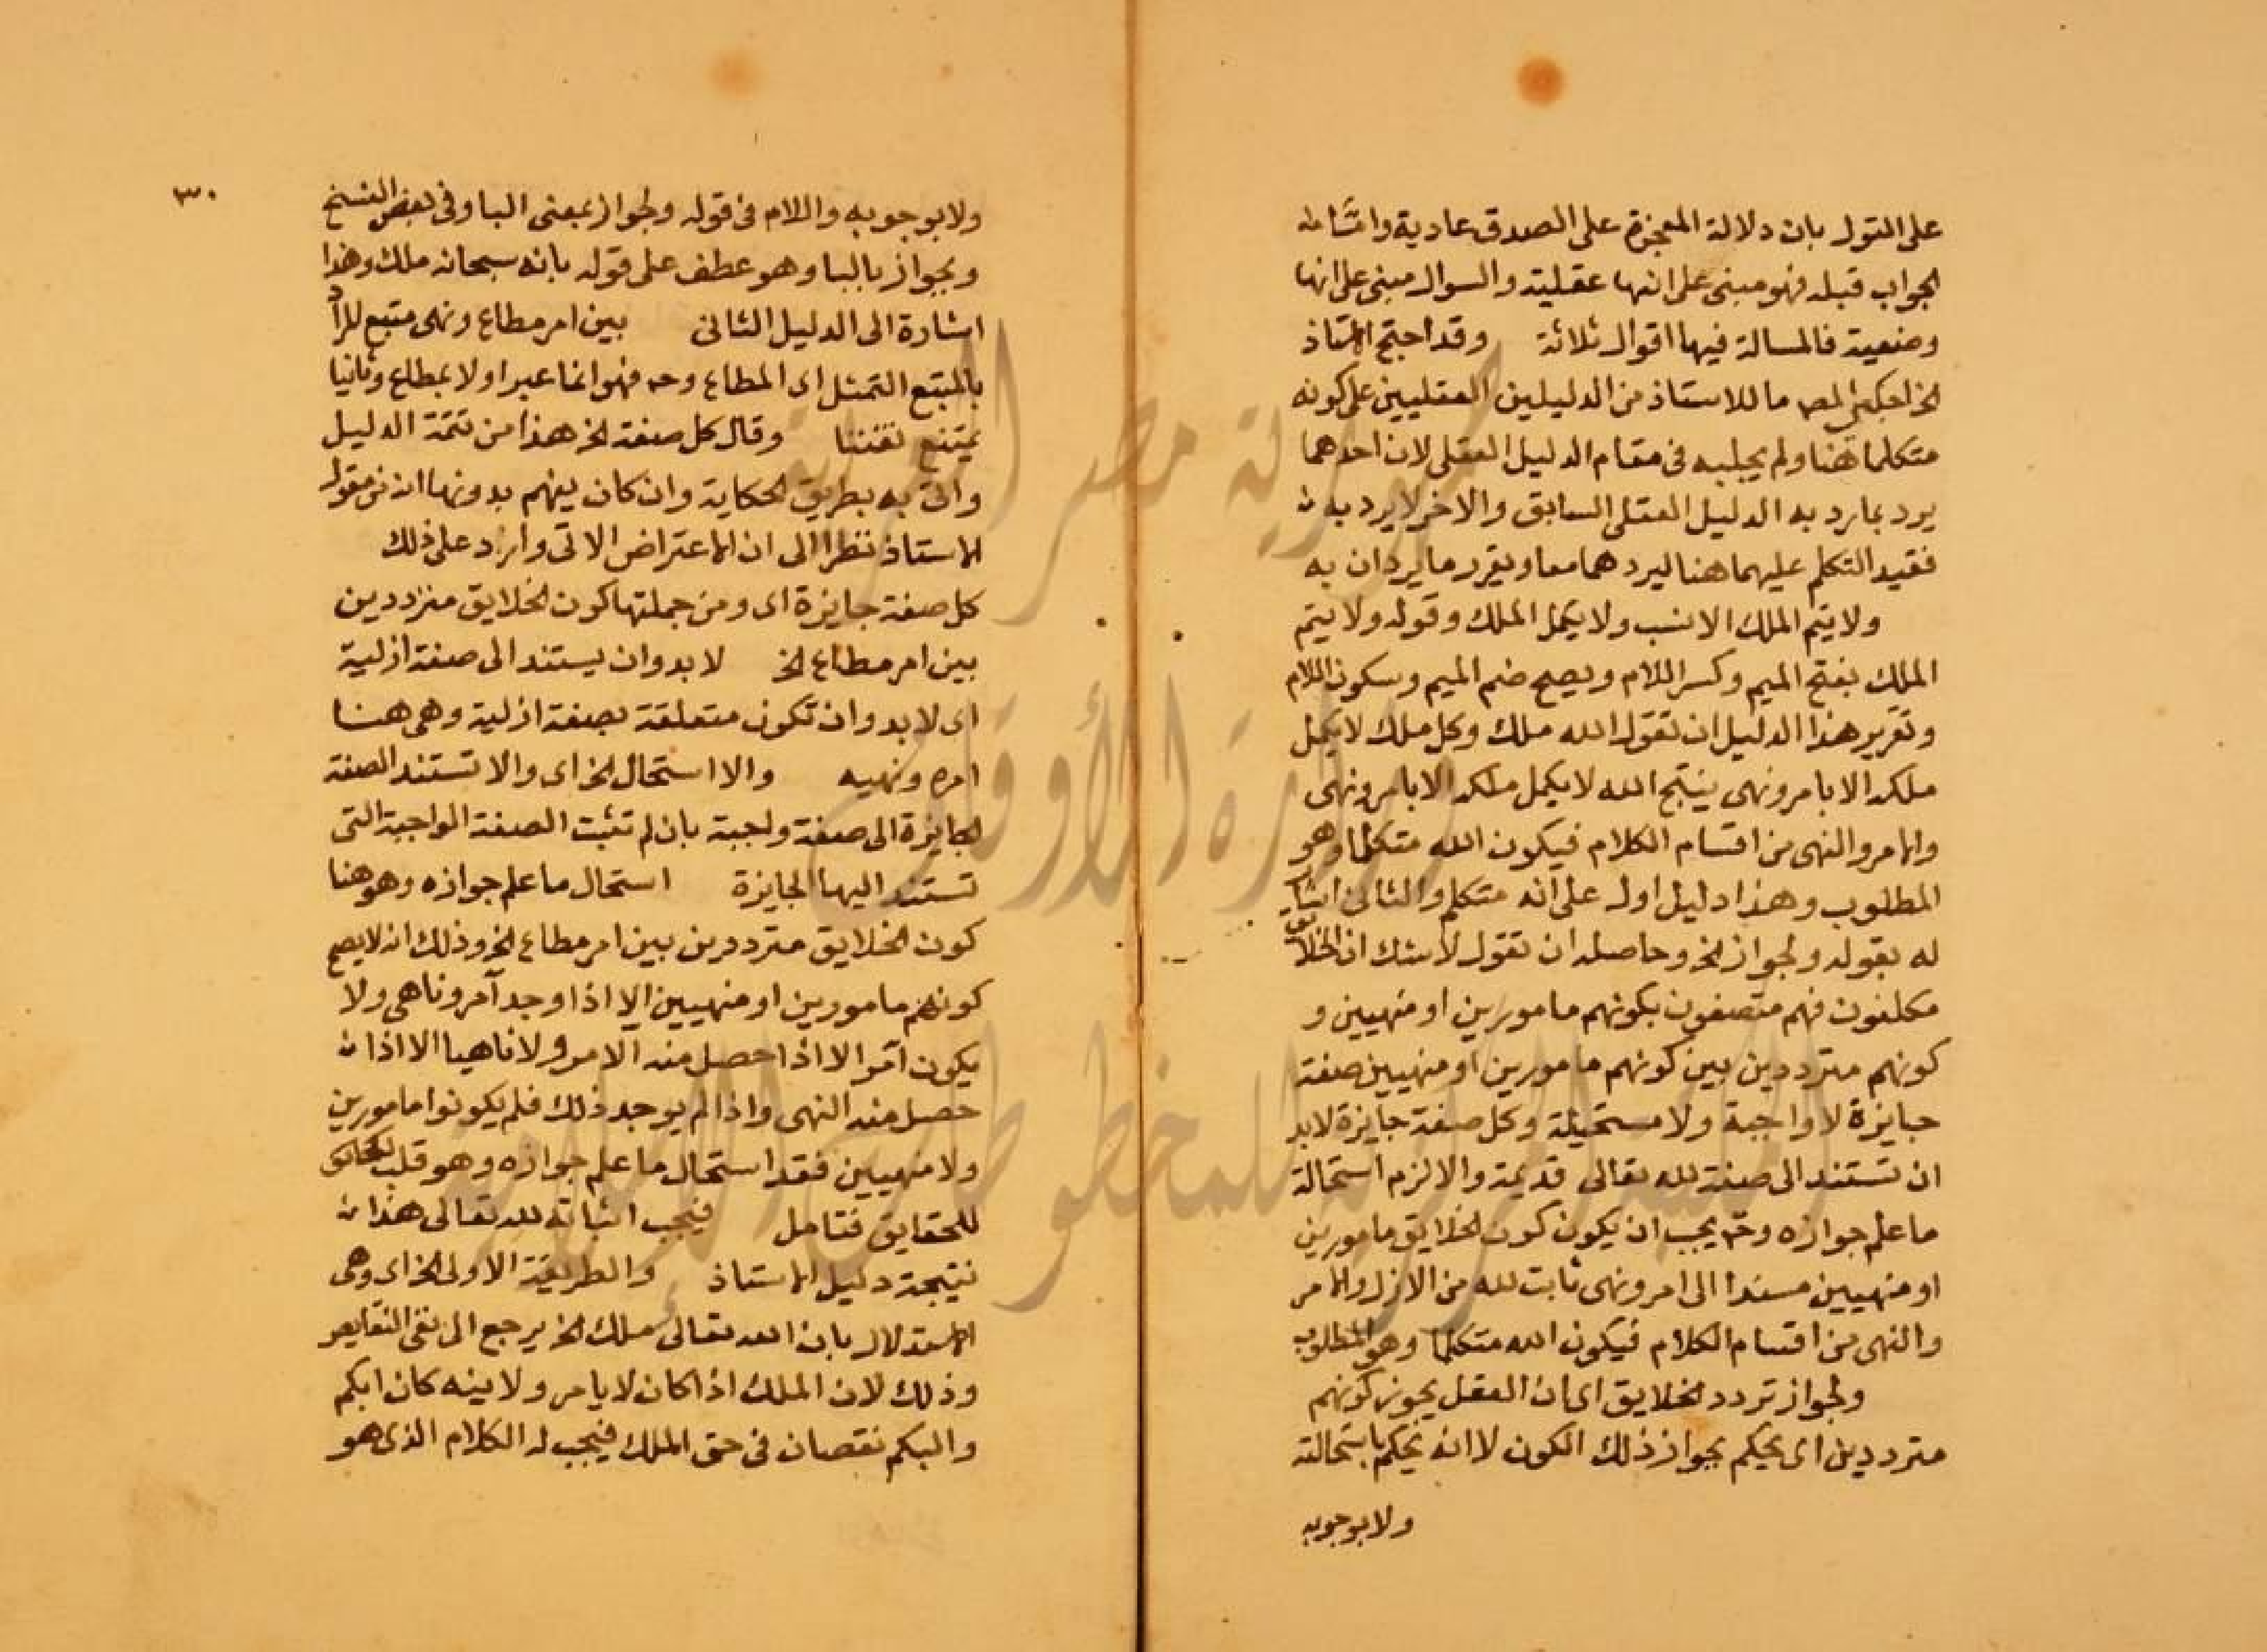 على القول بان دلالة المعجزة على الصدق عادية واما
الجواب قبله فهو مبنى على انها عقلية والسوال مبنى على انها
وضعية فالمسالة فيها اقوال ثلاثة وقد احتج الاستاذ
الخ المص ما للاستاذ من الدليلين العقليين على كونه
متكلما هنا ولم يجلبه فى مقام الدليل العقلى لان احدهما
يرد بما رد به الدليل العقلى السابق والاخر لا يرد به
فقيد التكلم عليهما هنا ليردهما معا ويقرر ما يردان به
ولا يتم الملك الانسب ولا يكمل الملك وقوله ولا يتم
الملك بفتح الميم وكسر اللام ويصح ضم الميم وسكون اللام
وتقرير هذا الدليل ان تقول الله ملك وكل ملك لا يكمل
ملكه الا بامر ونهى ينتج الله لا يكمل ملكه الا بامر ونهى
والامر والنهى من اقسام الكلام فيكون الله متكلما وهو
المطلوب وهذا دليل اول على انه متكلم والثانى اشار
له بقوله ولجواز الخ وحاصله ان تقول لا شك ان الخلايق
مكلفون فهم متصفون بكونهم مامورين او منهيين و
كونهم مترددين بين كونهم مامورين او منهيين صفة
جايزة لا واجبة ولا مستحيلة وكل صفة جايزة لا بد
ان تستند الى صفة لله تعالى قديمة والا لزم استحالة
ما علم جوازه وح يجب ان يكون كون الخلايق مامورين
او منهيين مسندا الى امر ونهى ثابت لله من الازل والامر
والنهى من اقسام الكلام فيكون الله متكلما وهو المطلوب
ولجواز تردد الخلايق اى ان العقل يجوز كونهم
مترددين اى يحكم بجواز ذلك الكون لا انه يحكم باستحالته
ولا بوجوبه
٣٠
ولا بوجوبه واللام فى قوله ولجواز بمعنى البا وفى بعض النسخ
وبجواز بالبا وهو عطف على قوله بانه سبحانه ملك وهذا
اشارة الى الدليل الثانى بين امر مطاع ونهى متبع المراد
بالمتبع الممتثل اى المطاع وح فهو انما عبر اولا بمطاع وثانيا
بمتبع تفننا وقال كل صفة الخ هذا من تتمة الدليل
واتى به بطريق الحكاية وان كان يفهم بدونها انه من مقول
الاستاذ نظرا الى ان الاعتراض الاتى وارد على ذلك
كل صفة جايزة اى ومن جملتها كون الخلايق مترددين
بين امر مطاع الخ لا بد وان يستند الى صفة ازلية
اى لا بد وان تكون متعلقة بصفة ازلية وهى هنا
امره ونهيه والا استحال الخ اى والا تستند الصفة
الجايزة الى صفة واجبة بان لم تثبت الصفة الواجبة التى
تستند اليها الجايزة استحال ما علم جوازه وهو هنا
كون الخلايق مترددين بين امر مطاع الخ وذلك انه لا يصح
كونهم مامورين او منهيين الا اذا وجد آمر وناهى ولا
يكون آمرا الا اذا حصل منه الامر ولا ناهيا الا اذا
حصل منه النهى واذا لم يوجد ذلك فلم يكونوا مامورين
ولا منهيين فقد استحال ما علم جوازه وهو قلب
للحقايق فتامل فيجب اثباته لله تعالى هذا
نتيجة دليل الاستاذ والطريقة الاولى الخ اى وهى
الاستدلال بان الله تعالى ملك الخ يرجع الى نفى النقايص
وذلك لان الملك اذا كان لا يامر ولا ينه كان ابكم
والبكم نقصان فى حق الملك فيجب له الكلام الذى هو